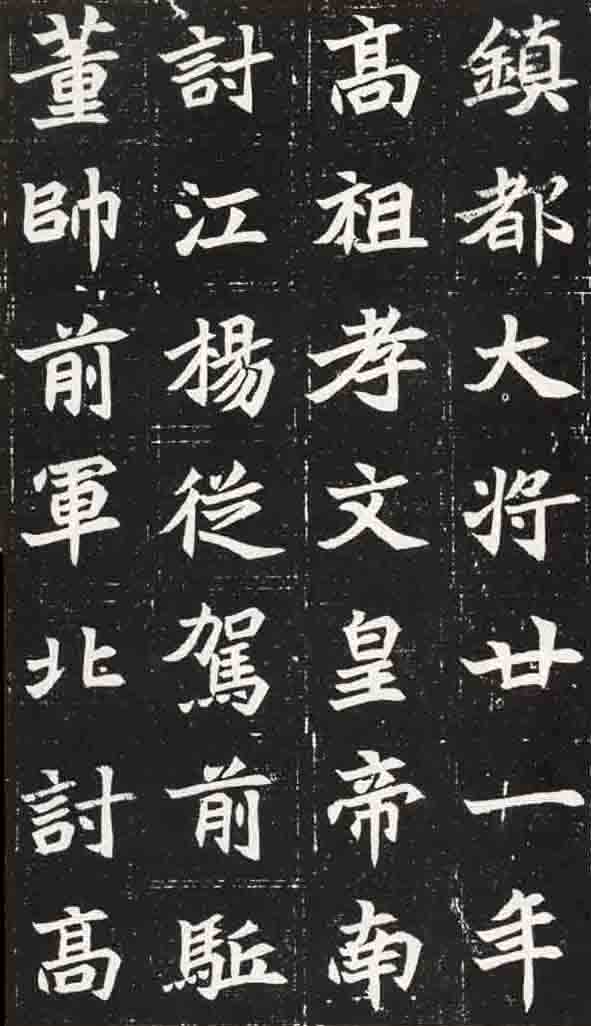 鎮都大將廿一年
髙祖孝文皇帝南
討江楊從駕前駈
董帥前軍北討髙